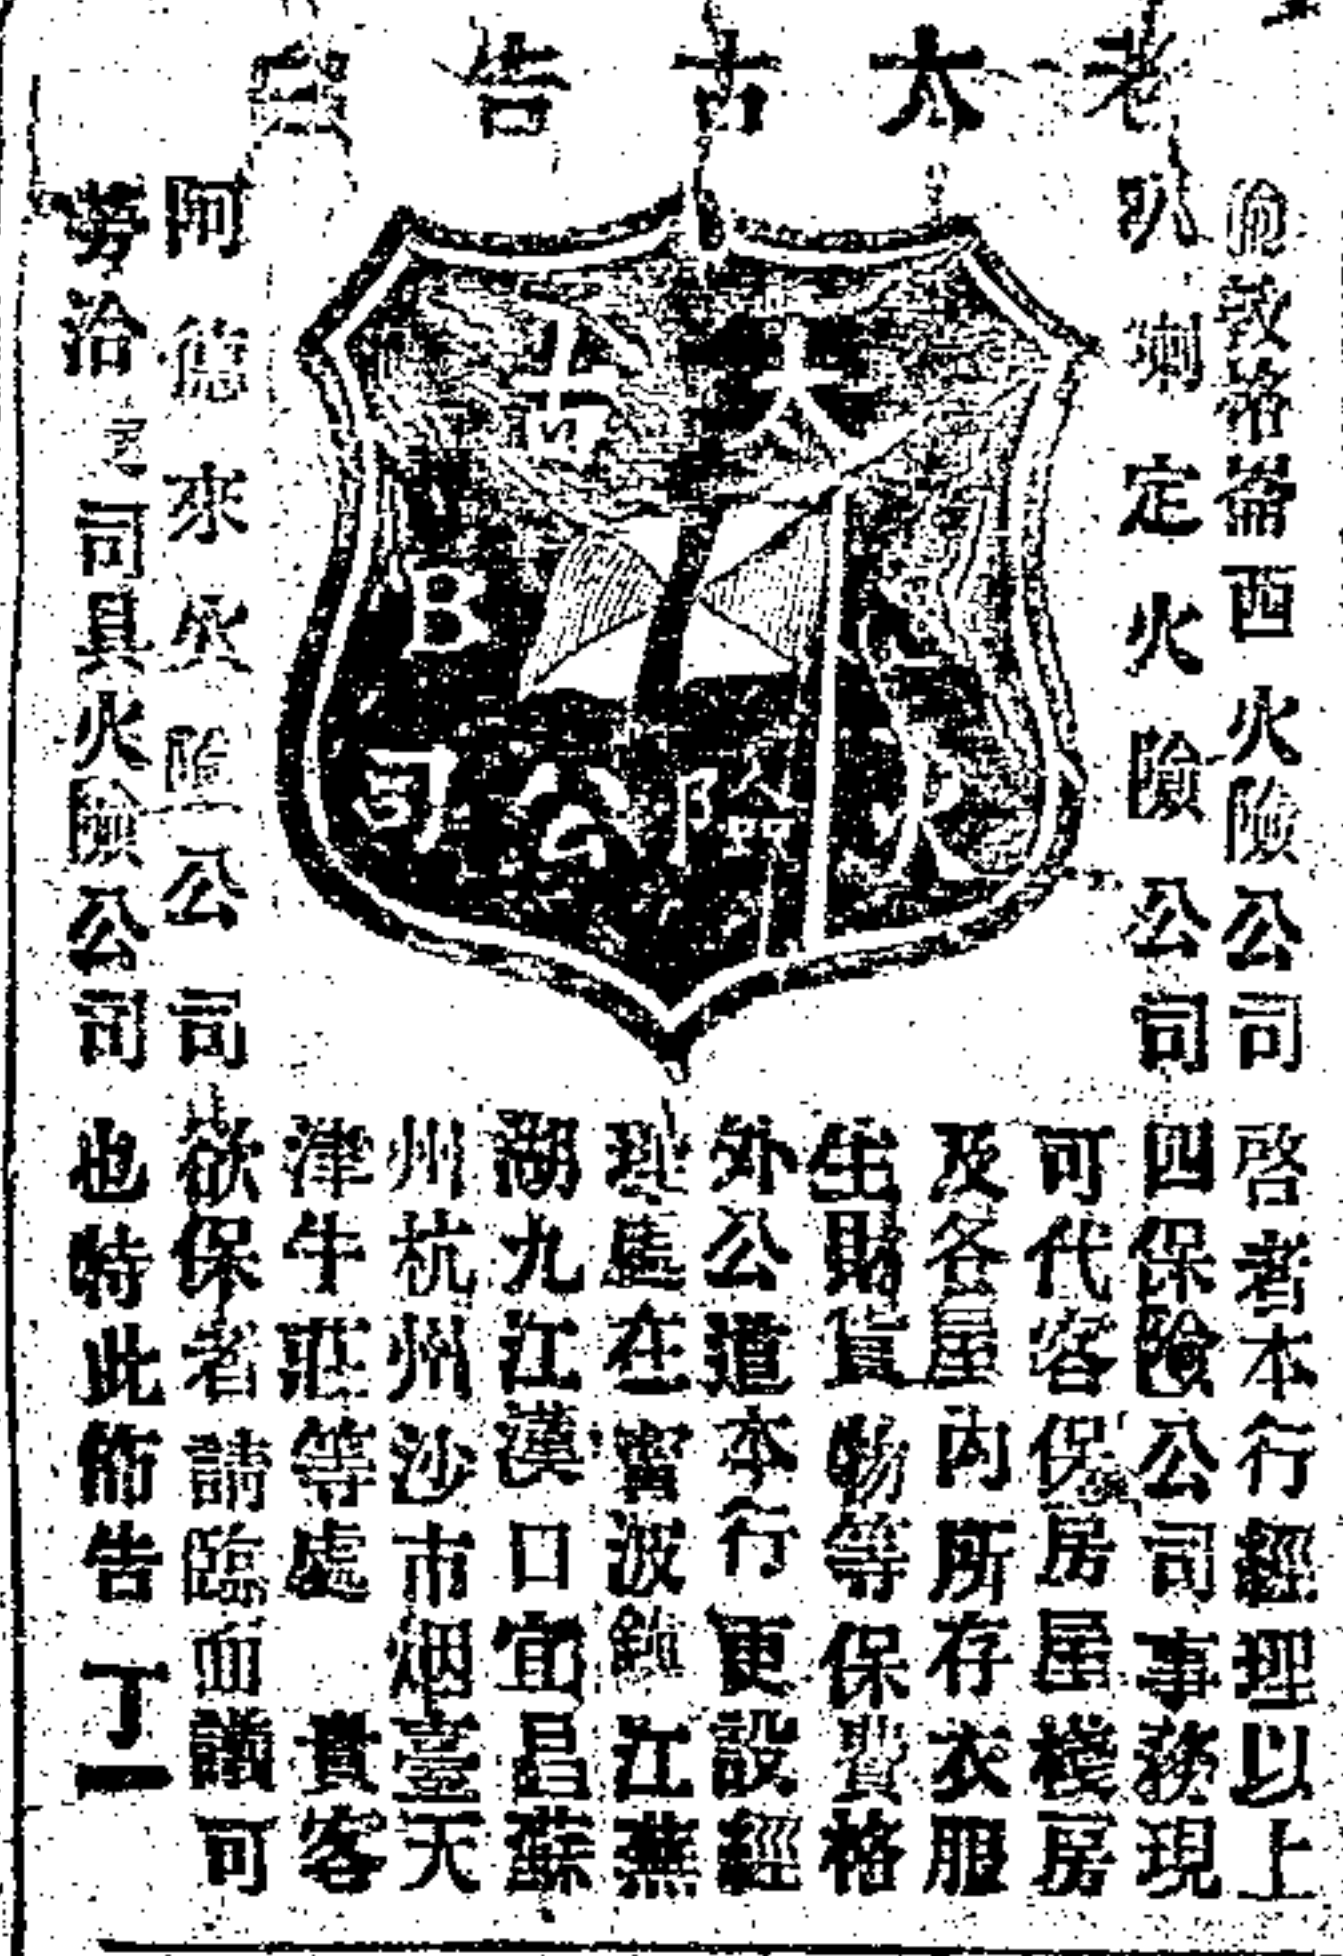 老太古告
倫敦崙西火險公司
叭喇定火險公司
太古
B
火險公司
阿德來火險公司
勞洽司具火險公司
啓者本行經理以上
四保險公司事務現
可代客保房屋棧房
及各屋內所存衣服
生財貨物等保費格
外公道本行更設經
理在寧波鎮江蕪
湖九江漢口宜昌蘇
州杭州沙市烟臺天
津牛莊等處 貴客
欲保者請臨面議可
也特此佈告 丁一